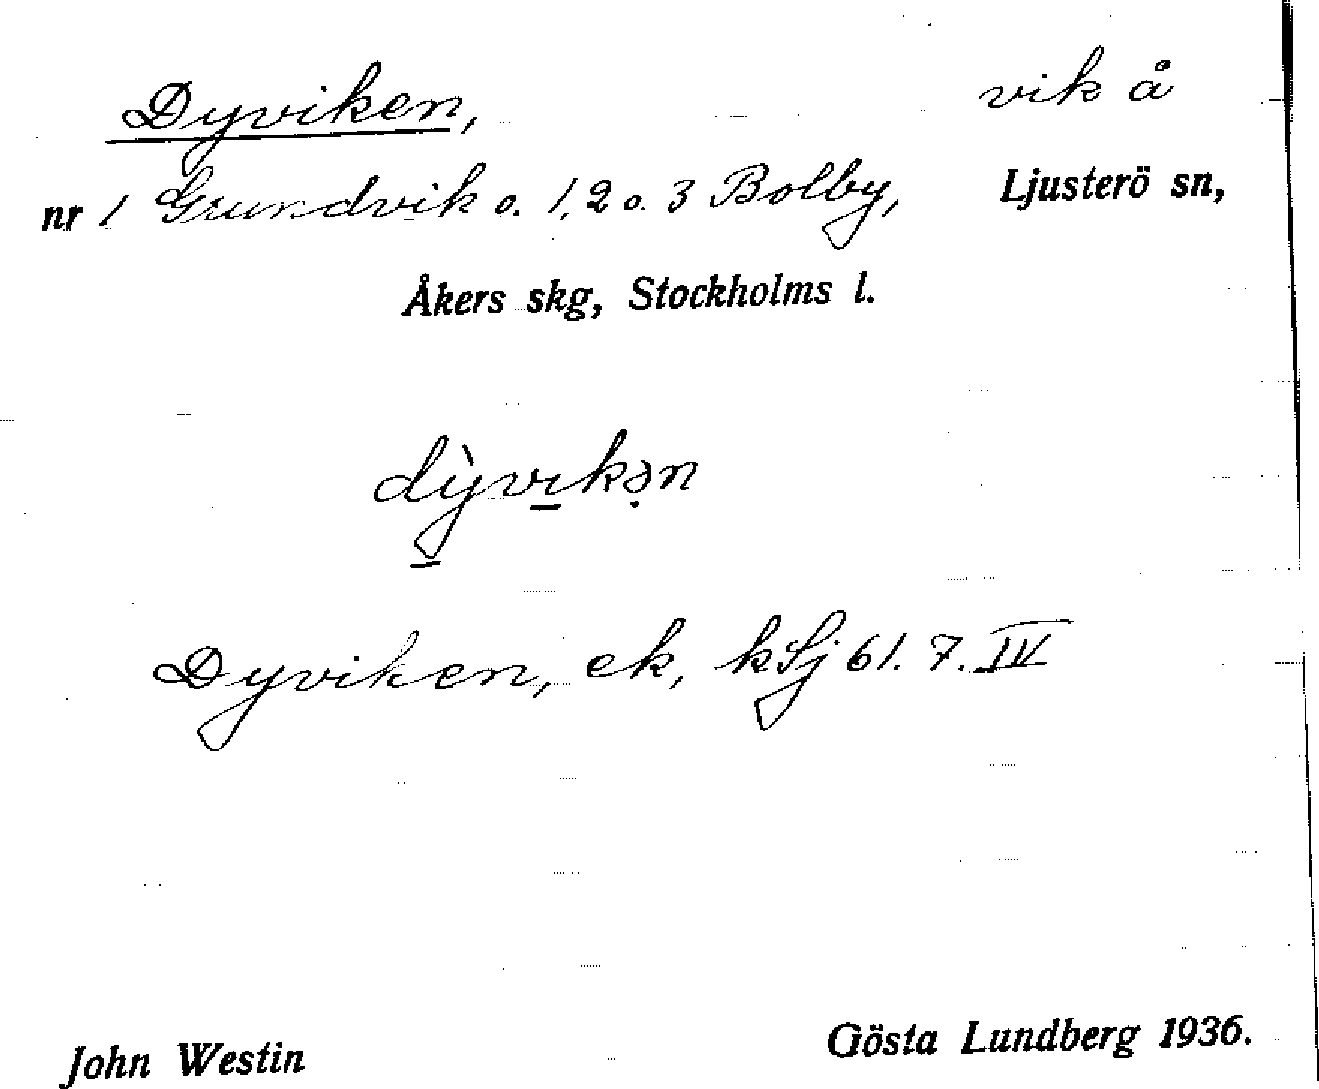 Dyviken, vik å
nr 1 Grundvik o. 1, 2 o. 3 Bolby, Ljusterö sn,
Åkers skg, Stockholms l.
dỳvikən
Dyviken, ek, kSj 61. 7. IV
John Westin Gösta Lundberg 1936.